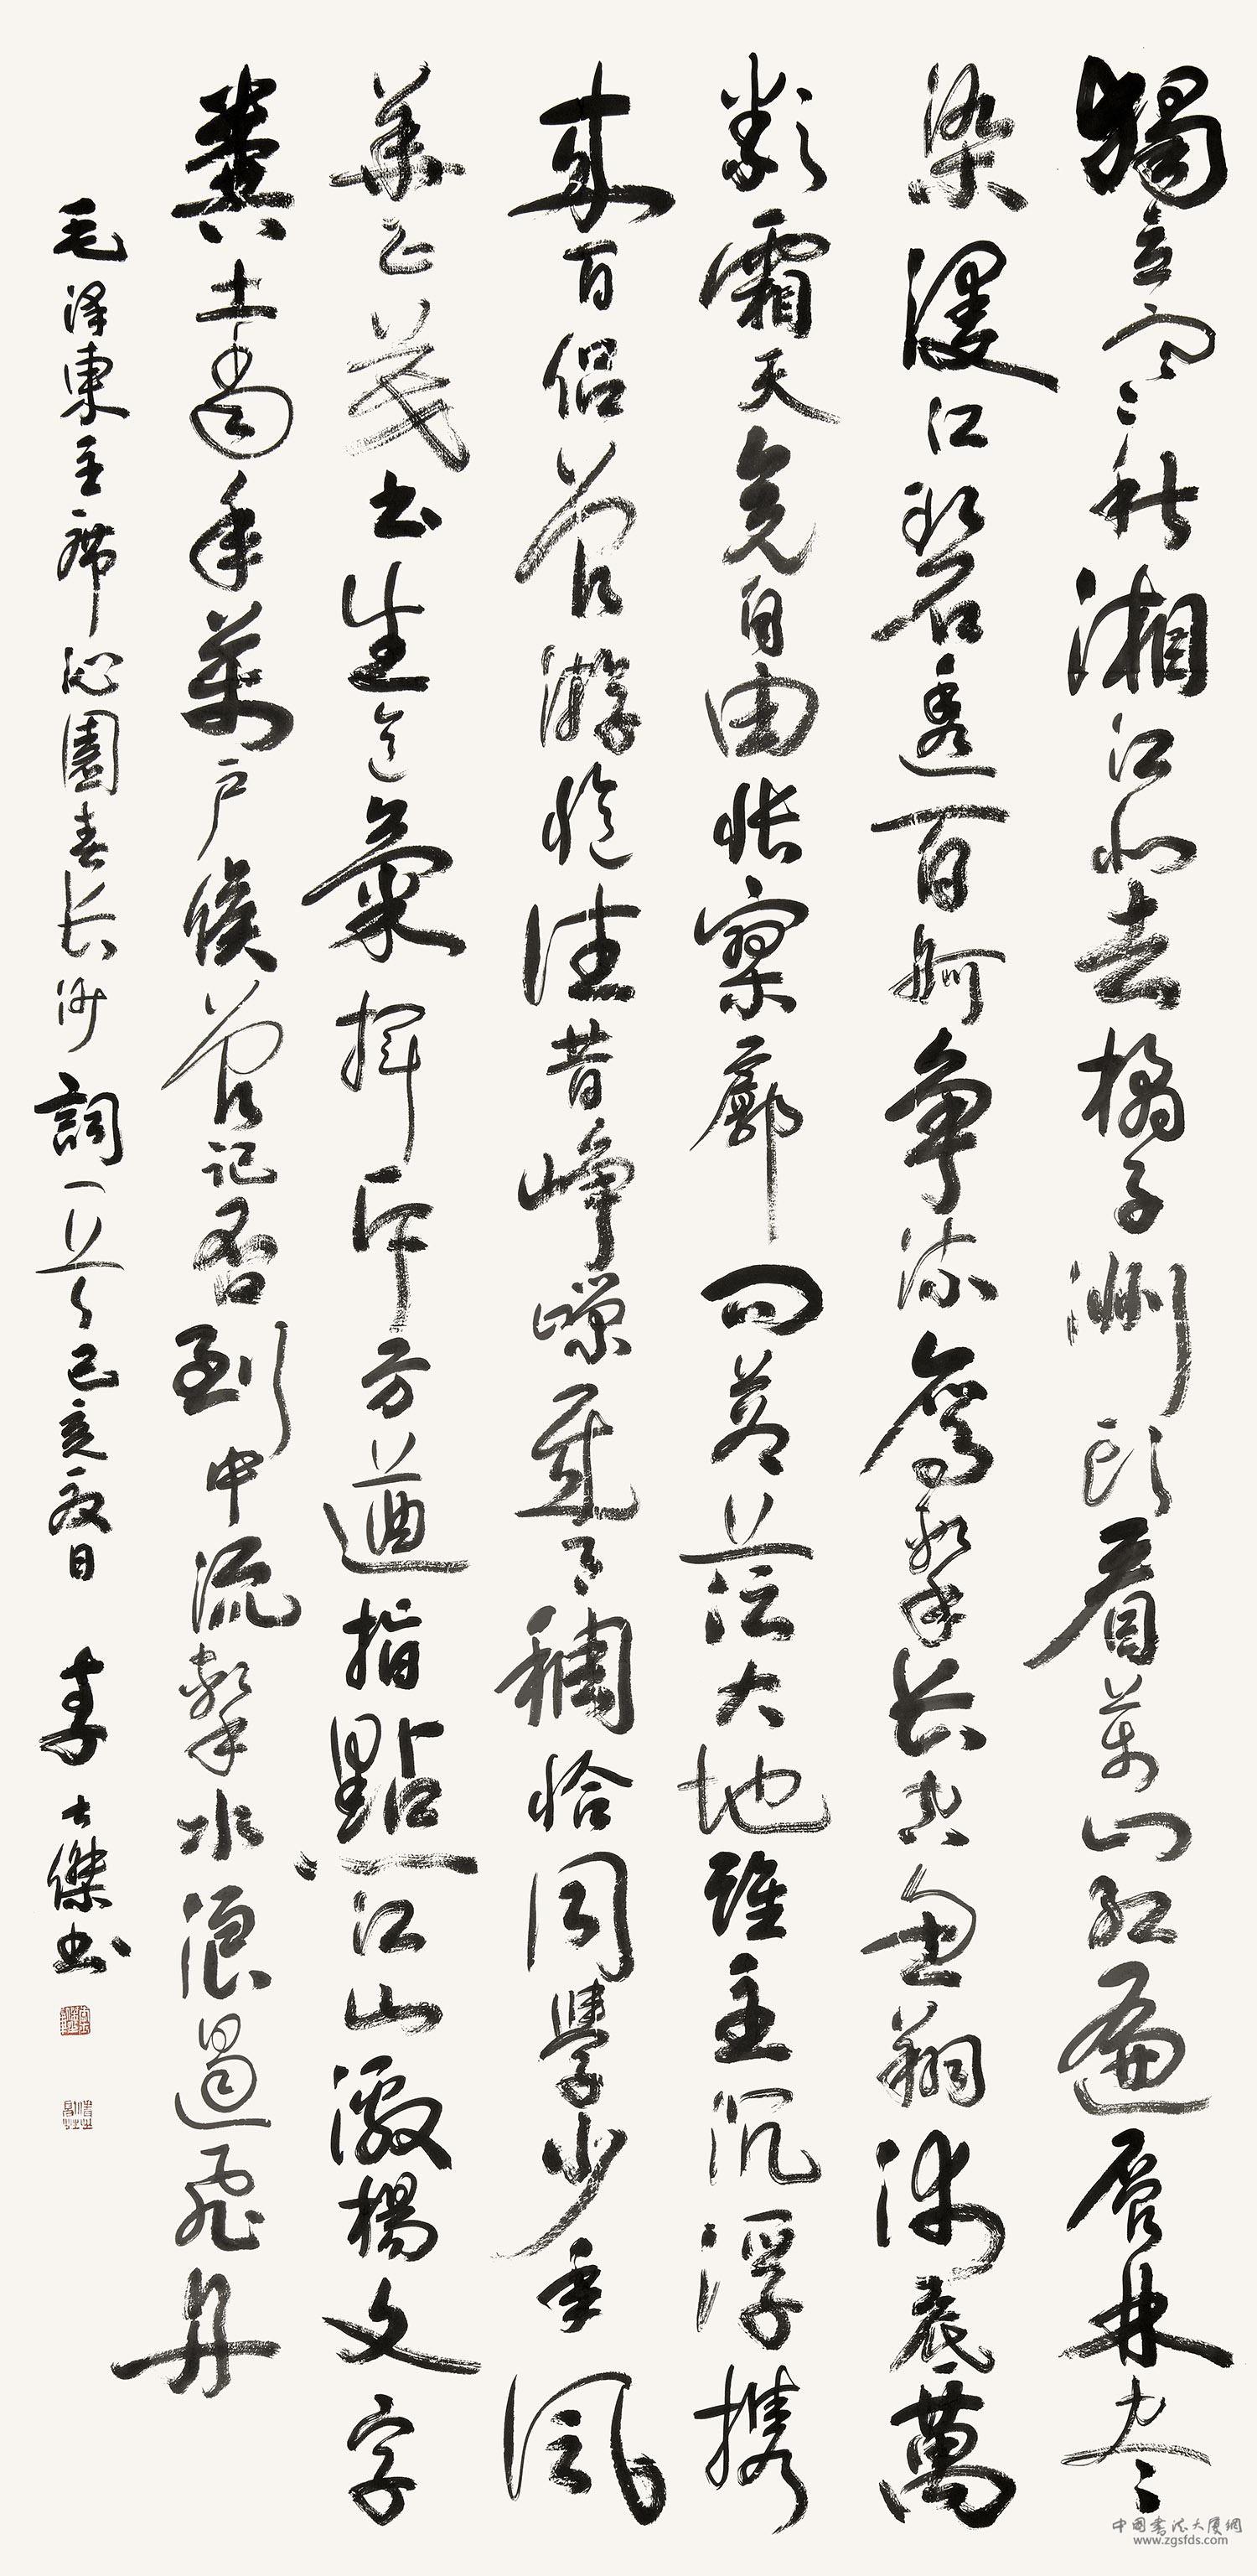 獨立寒秋湘江北去橘子洲頭看萬山紅遍層林盡
染漫江碧透百舸争流鷹擊长空魚翔淺底萬
類霜天競自由悵寥廓问蒼茫大地誰主沉浮携
來百侣曾游憶往昔峥嶸歲月稠恰同學少年風
華正茂书生意氣揮斥方遒指點江山激揚文字
糞土當年萬户侯曾記否到中流擊水浪遏飛舟
毛泽東主席沁園春长沙詞一首己亥夏日 李士傑书
中国书法大厦網
www.zgsfds.com